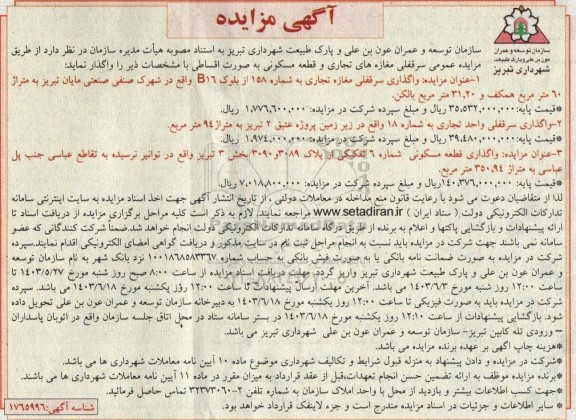 آگهی مزایده
سازمان توسعه و عمران
عون بن علی و پارک طبیعت
شهرداری تبریز
سازمان توسعه و عمران عون بن علی و پارک طبیعت شهرداری تبریز به استناد مصوبه هیأت مدیره سازمان در نظر دارد از طریق
مزایده عمومی سرقفلی مغازه های تجاری و قطعه مسکونی به صورت اقساطی با مشخصات ذیر را واگذار نماید:
۱-عنوان مزایده: واگذاری سرقفلی مغازه تجاری به شماره ۱۵۸ از بلوک B۱۶ واقع در شهرک صنفی صنعتی مایان تبریز به متراژ
۶۰ متر مربع همکف و ۳۱,۲۰ متر مربع بالکن.
*قیمت پایه: ۳۵,۵۳۲,۰۰۰,۰۰۰ ریال و مبلغ سپرده شرکت در مزایده: ۱,۷۷۶,۶۰۰,۰۰۰ ریال.
۲-واگذاری سرقفلی واحد تجاری به شماره ۱۸ واقع در زیر زمین پروژه عتیق ۲ تبریز به متراژ ۹۴ متر مربع.
*قیمت پایه: ۳۹,۴۸۰,۰۰۰,۰۰۰ ریال و مبلغ سپرده شرکت در مزایده: ۱,۹۷۴,۰۰۰,۰۰۰ ریال.
۳-عنوان مزایده: واگذاری قطعه مسکونی شماره ۶ تفکیکی از پلاک ۳۰۸۹و۳۰۹۰ بخش ۳ تبریز واقع در توانیر نرسیده به تقاطع عباسی جنب پل
عباسی به متراژ ۳۵۰,۹۴ متر مربع.
*قیمت پایه: ۱۴۰,۳۷۶,۰۰۰,۰۰۰ریال و مبلغ سپرده شرکت در مزایده: ۷,۰۱۸,۸۰۰,۰۰۰ ریال.
لذا از متقاضیان دعوت می شود با رعایت قانون منع مداخله در معاملات دولتی ، از تاریخ انتشار آگهی جهت اخذ اسناد مزایده به سایت اینترنتی سامانه
تدارکات الکترونیکی دولت ( ستاد ایران ) www.setadiran.ir مراجعه نمایند. لازم به ذکر است کلیه مراحل برگزاری مزایده از دریافت اسناد تا
ارائه پیشنهادات و بازگشایی پاکتها و اعلام به برنده از طریق درگاه سامانه تدارکات الکترونیکی دولت انجام خواهد شد.ضمناً شرکت کنندگانی که عضو
سامانه نمی باشند جهت شرکت در مزایده باید نسبت به انجام مراحل ثبت نام در سایت مذکور و دریافت گواهی امضای الکترونیکی اقدام نمایند.سپرده
شرکت در مزایده به صورت ضمانت نامه بانکی یا به صورت فیش بانکی به حساب شماره ۱۰۰۱۸۶۸۵۸۳۳۶۷ نزد بانک شهر به نام سازمان توسعه
و عمران عون بن علی و پارک طبیعت شهرداری تبریز واریز گردد. مهلت دریافت اسناد مزایده از ساعت ۸:۰۰ صبح روز شنبه مورخ ۱۴۰۳/۵/۲۷ تا
ساعت ۱۲:۰۰ روز شنبه مورخ ۱۴۰۳/۶/۳ می باشد. آخرین مهلت ارسال پیشنهادات تا ساعت ۱۲:۰۰ روز یکشنبه مورخ ۱۴۰۳/۶/۱۸ می باشد. سپرده
شرکت در مزایده باید به صورت فیزیکی تا ساعت ۱۲:۰۰ روز یکشنبه مورخ ۱۴۰۳/۶/۱۸ به دبیرخانه سازمان توسعه و عمران عون بن علی تحویل داده
شود. بازگشایی پیشنهادات از ساعت ۱۲:۱۰ روز یکشنبه مورخ ۱۴۰۳/۶/۱۸ در بستر سامانه ستاد در محل اتاق جلسه سازمان واقع در اتوبان پاسداران
– ورودی تله کابین تبریز– سازمان توسعه و عمران عون بن علی شهرداری تبریز می باشد.
*هزینه چاپ آگهی بر عهده برنده مزایده می باشد.
*شرکت در مزایده و دادن پیشنهاد به منزله قبول شرایط و تکالیف شهرداری موضوع ماده ۱۰ آیین نامه معاملات شهرداری ها می باشد.
*برنده مزایده موظف به ارائه تضمین حسن انجام تعهدات،قبل از عقد قرارداد به میزان مقرر در ماده ۱۱ آیین نامه معاملات شهرداری ها می باشد.
*جهت کسب اطلاعات بیشتر و بازدید از محل با واحد املاک سازمان به شماره تلفن ۲-۳۲۳۷۳۰۶۰ تماس حاصل فرمایید.
*سایر اطلاعات و جزئیات در اسناد مزایده مندرج است و جزء لاینفک قرارداد خواهد بود.
شناسه آگهی:۱۷۶۵۹۹۶